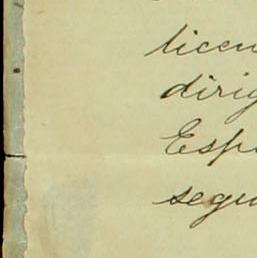 licen
dirig
Espa
segu